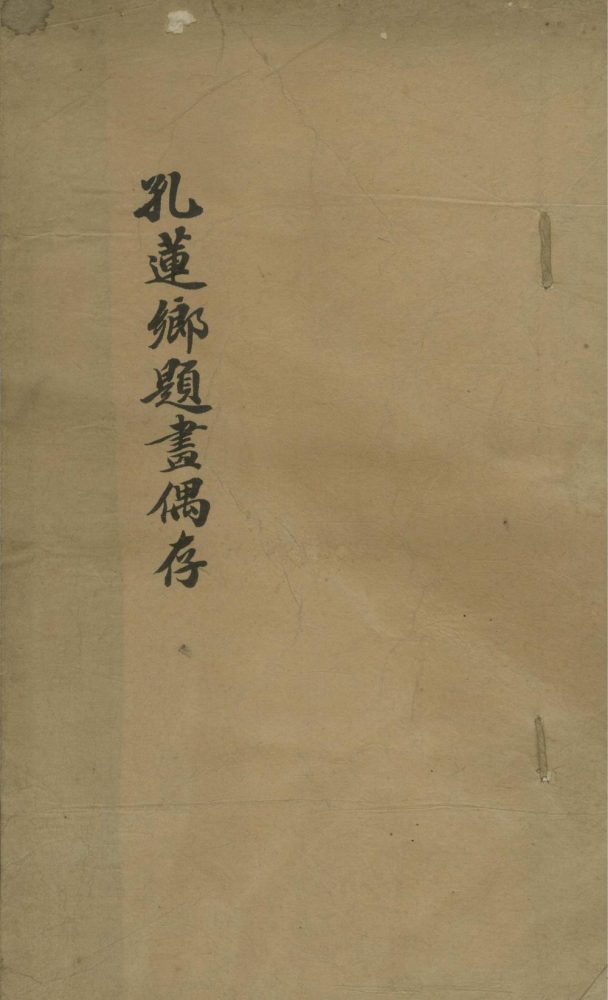 孔蓮鄉題畫偶存